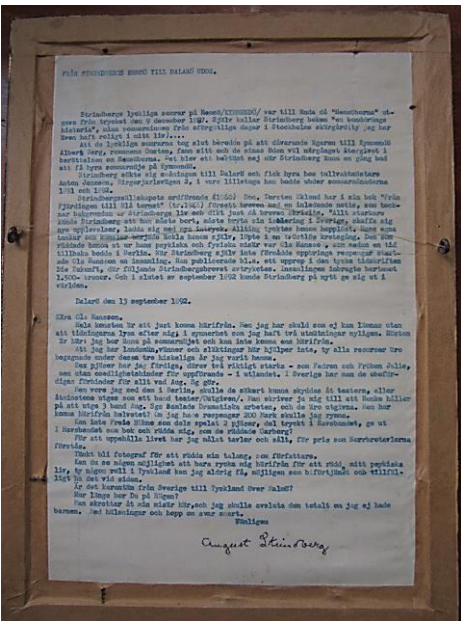 FRÅN STRINDBERGS HEMSÖ TILL DALARÖ UDDE.
Strindbergs lyckliga somrar på Hemsö/KYMMENDÖ/ var till ända då "Hemsöborna" ut-
gavs från trycket den 9 december 1887. Själv kallar Strindberg boken "en
historia", minnen från oförgätliga dagar i Stockholms skärgård/ty jag har
även haft roligt i mitt liv/....
Att de lyckliga somrarna tog slut berodde på att dåvarande ägaren till Kymmendö
Albert Berg, romanens Gusten, fann sitt och de sinas
berättelsen om Hemsöborna. Det blev ett när Strindberg ännu en gång bad
att få hyra sommarnöje på Kymmendö.
Strindberg sökte sig småningom till Dalarö och fick hyra hos tullvaktmästare
Anton Jansson, Birgerjarlsvägen 2, i vars lillstuga han bodde under sommarmånaderna
1891 och 1892.
Strindbergssällskapets ordförande (1960) Doc. Torsten Eklund har i sin bok "Från
Fjärdingen till Blå tornet" (tr.1946) försett breven med en inledande notis, som teck-
nar bakgrunden av Strindbergs liv och dikt just då breven skrivits. "Allt starkare
kände Strindberg att han måste bort, måste bryta sin isolering i Sverige, skaffa sig
nya upplevelser, ladda sig med nya intryck. Allting tycktes honom hopplöst. Hans egna
tankar som kanske verkade kloka själv, löpte i en ändlös kretsgång. Den
räddande honom ut ur hans psykiska och fysiska misär var Ola Hansson, som sedan en tid
tillbaka bodde i Berlin. När Strindberg själv inte förmådde uppbringa respengar start-
ade Ola Hansson en insamling. Han publicerade bl.a. ett upprop i den tyska tidskriften
Die Zukunft, där följande Strindbergsbrevet avtrycktes. Insamlingen inbragte närmast
1.500- kronor. Och i slutet av september 1892 kunde Strindberg på nytt ge sig ut i
världen.
Dalarö den 13 september 1892.
Kära Ola Hansson.
Hela konsten är att just komma härifrån. Men jag har skuld som ej kan lämnas utan
att tidningarna lysa efter mig, i synnerhet som jag haft två utmätningar nyligen. Hösten
är här; jag bor ännu på sommarnöjet och kan inte komma ens härifrån.
Att jag har landsmän, vänner och släktingar här hjälper inte, ty alla resurser äro
begagnade under dessa tre hiskeliga år jag varit hemma.
Sex pjäser har jag färdiga, därav två viktigt starka - som Fadren och Fröken Julie,
men utan osedlighetshinder för uppförande - i utlandet. I Sverige har man de obeför-
digas förbinder för allt vad Aug. Sg gör.
Men vore jag med dem i Berlin, skulle de säkert kunna skyddas åt teatern, eller
åtminstone utges som ett band teater/Utgiven/. Man skriver ju mig till att Ranke håller
på att utge 3 band Aug. Sgs Samlade Dramatiska arbeten, och de äro utgivna. Men hur
komma härifrån helvetet? Om jag hade respengar 200 Mark skulle jag rymma.
Kan inte Freie Bühne som dels spelat 2 pjäser, del tryckt i Havsbandet, ge ut
I Havsbandet som bok och rädda mig, som de räddade Garborg?
För att uppehålla livet har jag målat tavlor och sålt, för pris som Norrbroterlorna
förstås.
Tänkt bli fotograf för att rädda min talang, som författare.
Kan du se någon möjlighet att bara rycka mig härifrån för att rädda mitt psykiska
liv, ty någon roll i Tyskland kan jag aldrig få, möjligen som biförtjänst och tillfäl-
ligt ha det vid sidan.
Är det karantän från Sverige till Tyskland över Malmö?
Hur länge bor Du på Rügen?
Man skrattar åt min misär här, och jag skulle avsluta den totalt om jag ej hade
barnen. Med hälsningar och hopp om svar snart.
Vänligen
August Strindberg